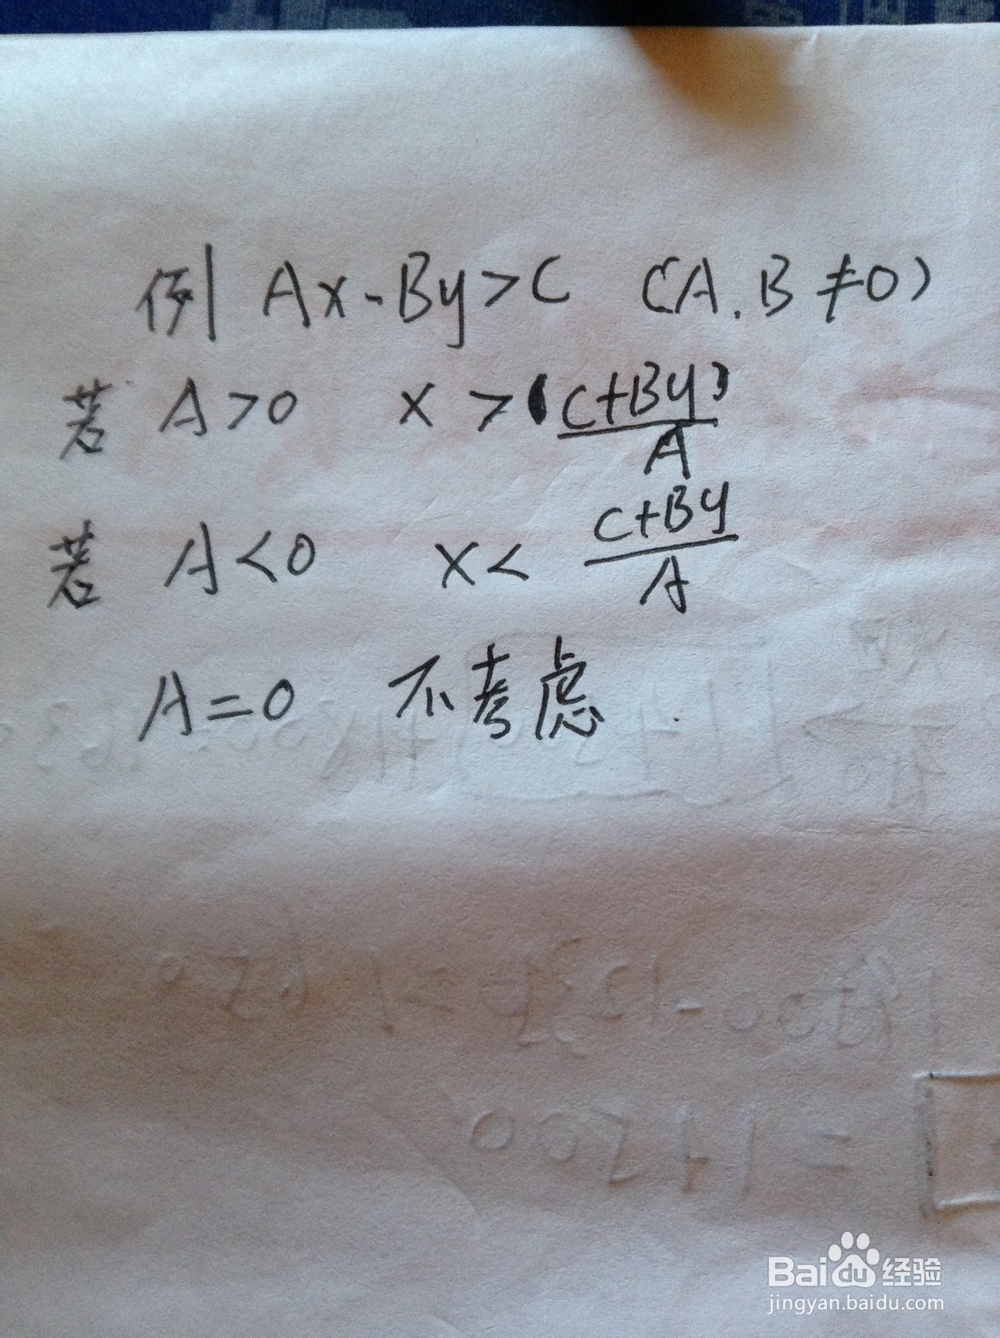 例 Ax-By>C (A.B≠0)
若 A>0 x>(C+By)/A
若 A<0 x< C+By/A
A=0 不考虑
Baidu经验
jingyan.baidu.com